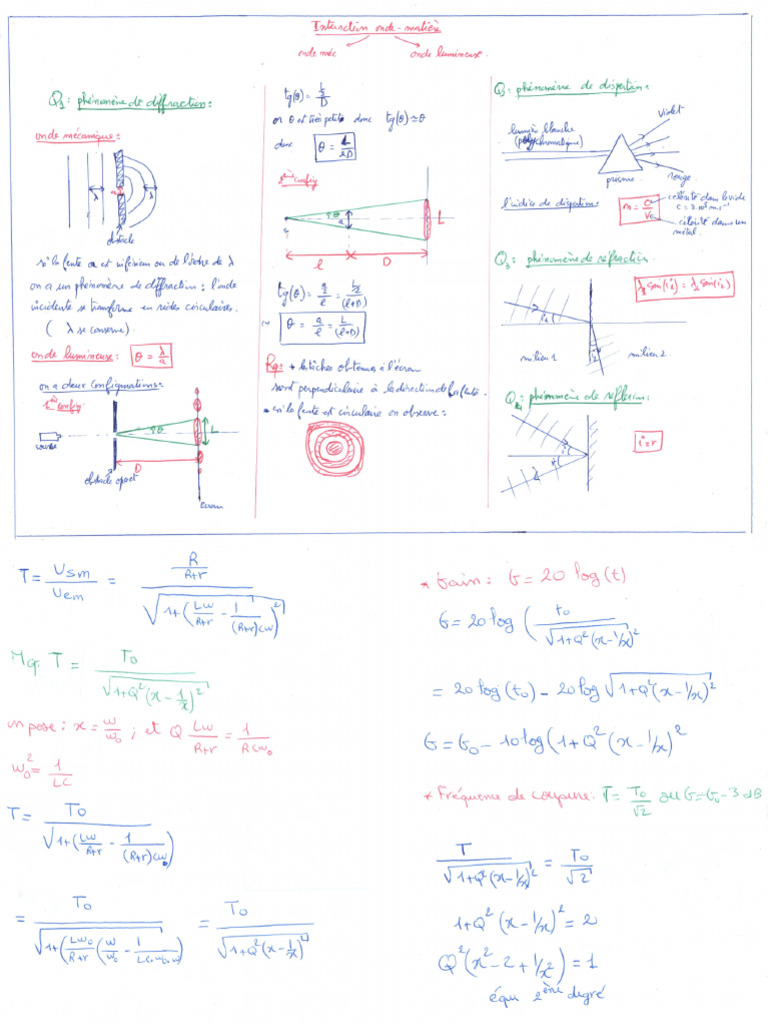 Interaction onde-matière
onde méc
onde lumineuse.
Q1: phénomène de diffraction:
onde mécanique:
λ
a
λ
obstacle
si la fente a est inférieur ou de l'ordre de λ
on a un phénomène de diffraction: l'onde
incidente se transforme en rides circulaires.
( λ se conserve)
onde lumineuse: θ = λ/a
on a deux configurations:
1ère config
source
2θ
L
D
obstacle opact
Écran
tg(θ) = (L/2)/D
or θ est très petite donc tg(θ) ≃ θ
donc θ = L/2D
2ème config
2θ
a
L
l
D
tg(θ) = a/l = (L/2)/(l+D)
~ θ = a/l = L/(l+D)
Rq: * la tâches obtenues à l'écran
sont perpendiculaire à la direction de la fente.
* si la fente est circulaire on observe:
Q: phénomène de dispertion:
lumière blanche
(polychromatique)
violet
rouge
prisme
l'indice de dispertion:
n = c/v
célérité dans le vide
c = 3.10⁸ m.s⁻¹
célérité dans un
métal.
Q3: phénomène de réfraction
λ2 sin(i1) = λ1 sin(i2)
i1
i2
milieu 1
milieu 2.
Q4: phénomène de réflexion:
i
r
i=r
T = Usm/Uem = (R/(R+r))/√(1+(Lω/(R+r) - 1/((R+r)cω))²)
Mq. T = T0/√(1+Q²(x-1/x)²)
on pose: x = ω/ω0 ; et Q Lω/(R+r) = 1/(Rcω0)
ω0² = 1/LC
T = T0/√(1+(Lω/(R+r) - 1/((R+r)cω))
= T0/√(1+(Lω0/(R+r)(ω/ω0 - 1/(LCω0ω)) = T0/√(1+Q²(x-1/x)²)
* Gain: G = 20 log(t)
G = 20 log ( T0/√(1+Q²(x-1/x)²)
= 20 log(t0) - 20 log √(1+Q²(x-1/x)²)
G = G0 - 10 log(1+Q²(x-1/x)²
* Fréquence de coupure: T = T0/√2 ou G = G0 - 3 dB
T/√(1+Q²(x-1/x)²) = T0/√2
1+Q²(x-1/x)² = 2
Q²(x²-2+1/x²) = 1
équ 2ème degré